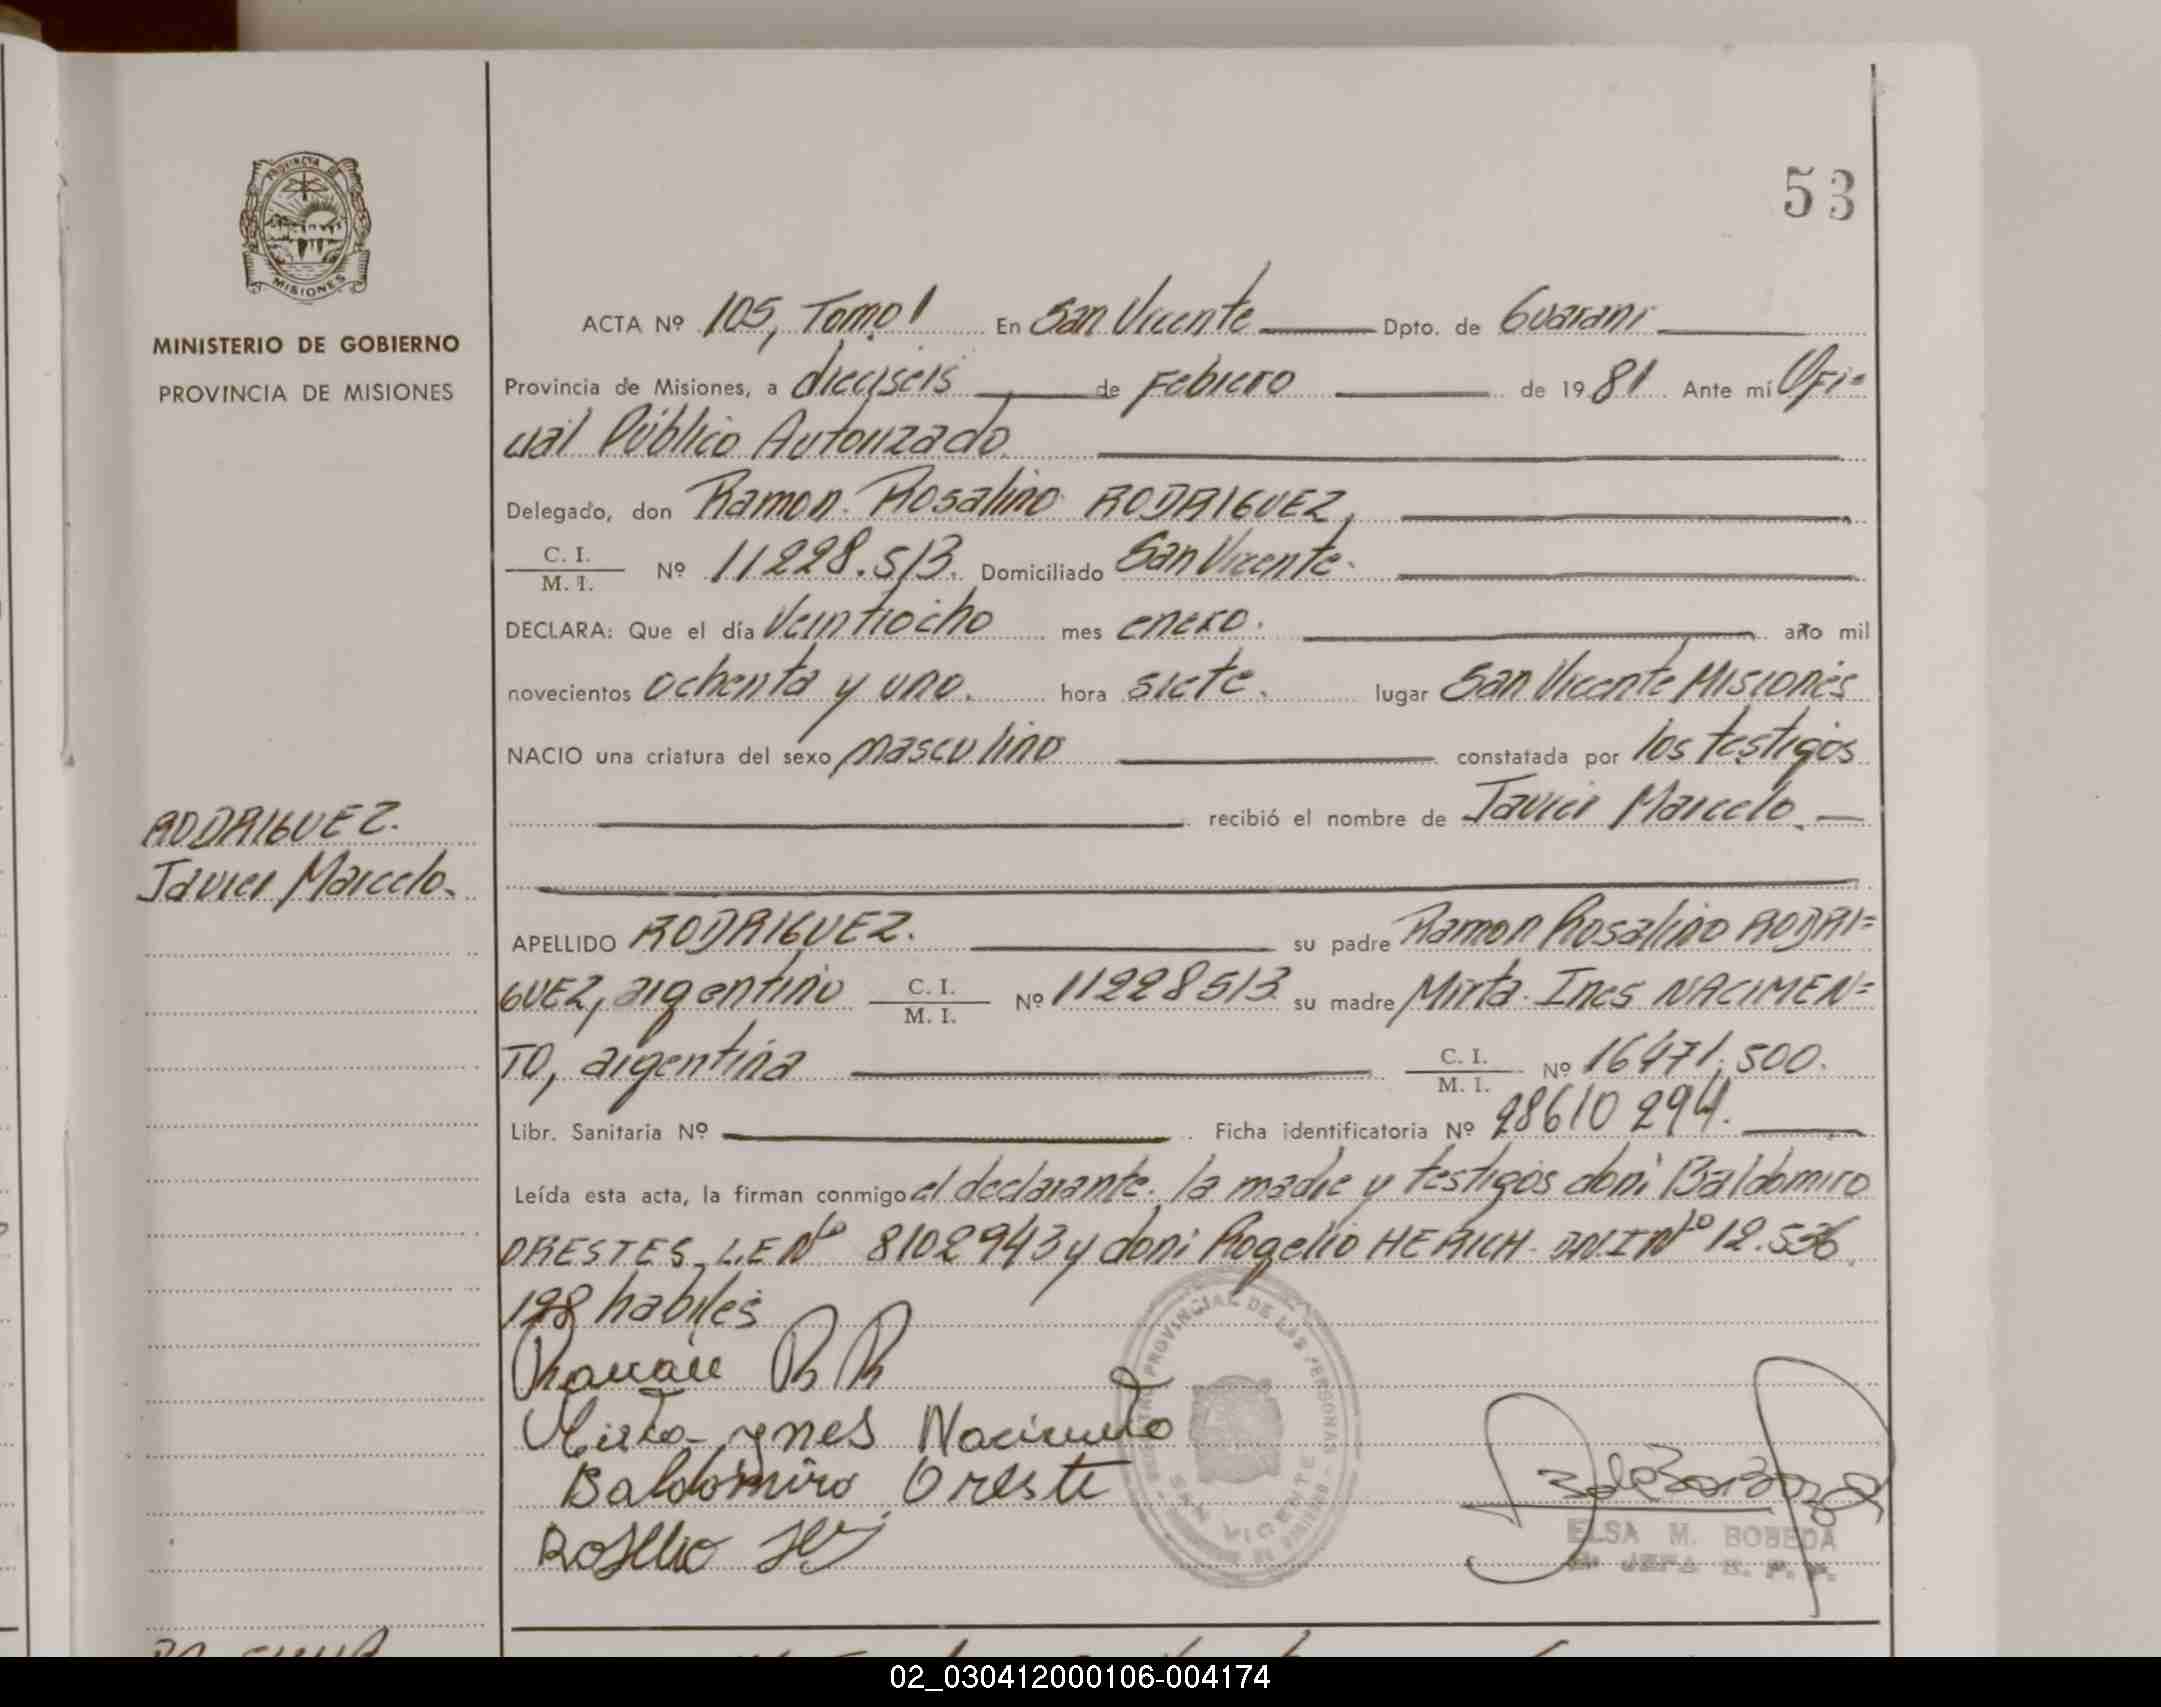 53
PROVINCIA DE
MISIONES
MINISTERIO DE GOBIERNO
PROVINCIA DE MISIONES
ACTA Nº 105, Tomo I En San Vicente Dpto. de Guarani
Provincia de Misiones, a dieciseis de Febrero de 1981 Ante mí Ofi=
cial Público Autorizado
Delegado, don Ramon Rosalino RODRIGUEZ,
C. I.
M. I. Nº 11228.513. Domiciliado San Vicente.
DECLARA: Que el día Veintiocho mes enero. año mil
novecientos ochenta y uno. hora siete. lugar San Vicente Misiones
NACIO una criatura del sexo masculino constatada por los testigos
recibió el nombre de Javier Marcelo.
RODRIGUEZ.
Javier Marcelo.
APELLIDO RODRIGUEZ. su padre Ramon Rosalino RODRI=
GUEZ, argentino C. I. M. I. Nº 11228513 su madre Mirta Ines NACIMEN=
TO, argentina C. I. M. I. Nº 16471.500.
Libr. Sanitaria Nº Ficha identificatoria Nº 28610294.
Leída esta acta, la firman conmigo el declarante, la madre y testigos don: Baldomiro
ORESTES, L.E Nº 8102943 y don: Rogelio HERICH. DNI Nº 12.536
198 habiles
Ramon R R
Mirta ynes Nacimento
Baldomiro Oreste
Rogelio
REGISTRO PROVINCIAL DE LAS PERSONAS
SAN VICENTE
ELSA M. BOBEDA
JEFA R. P. P.
02_030412000106-004174